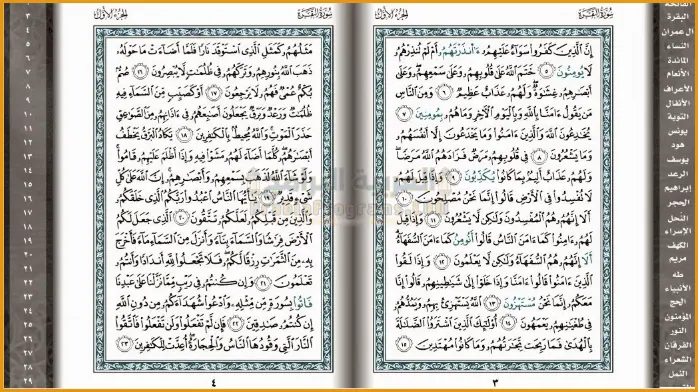 سورة البقرة
الجزء الأول
إن الذين كفروا سواء عليهم ءآنذرتهم أم لم تنذرهم
لا يومنون ٥ ختم الله على قلوبهم وعلى سمعهم وعلى
أبصرهم غشوة ولهم عذاب عظيم ٦ ومن الناس
من يقول ءامنا بالله وباليوم الاخر وما هم بمومنين ٧
يخدعون الله والذين ءامنوا وما يخدعون إلا أنفسهم
وما يشعرون ٨ في قلوبهم مرض فزادهم الله مرضا
ولهم عذاب أليم بما كانوا يكذبون ٩ وإذا قيل لهم
لا تفسدوا في الأرض قالوا إنما نحن مصلحون ١٠
ألا إنهم هم المفسدون ولكن لا يشعرون ١١ وإذا قيل
لهم ءامنوا كما ءامن الناس قالوا أنومن كما ءامن السفهاء
ألا إنهم هم السفهاء ولكن لا يعلمون ١٢ وإذا لقوا
الذين ءامنوا قالوا ءامنا وإذا خلوا إلى شيطينهم قالوا إنا
معكم إنما نحن مستهزءون ١٣ الله يستهزئ بهم ويمدهم
في طغينهم يعمهون ١٤ أولئك الذين اشتروا الضللة
بالهدى فما ربحت تجرتهم وما كانوا مهتدين ١٥
٣
سورة البقرة
الجزء الأول
مثلهم كمثل الذي استوقد نارا فلما أضاءت ما حوله
ذهب الله بنورهم وتركهم في ظلمت لا يبصرون ١٦ صم
بكم عمي فهم لا يرجعون ١٧ أو كصيب من السماء فيه
ظلمت ورعد وبرق يجعلون أصبعهم في ءاذانهم من الصوعق
حذر الموت والله محيط بالكفرين ١٨ يكاد البرق يخطف
أبصرهم كلما أضاء لهم مشوا فيه وإذا أظلم عليهم قاموا
ولو شاء الله لذهب بسمعهم وأبصرهم إن الله على كل
شيء قدير ١٩ يأيها الناس اعبدوا ربكم الذي خلقكم
والذين من قبلكم لعلكم تتقون ٢٠ الذي جعل لكم
الأرض فرشا والسماء بناء وأنزل من السماء ماء فأخرج
به من الثمرت رزقا لكم فلا تجعلوا لله أندادا وأنتم
تعلمون ٢١ وإن كنتم في ريب مما نزلنا على عبدنا
فاتوا بسورة من مثله وادعوا شهداءكم من دون الله
إن كنتم صدقين ٢٢ فإن لم تفعلوا ولن تفعلوا فاتقوا
النار التي وقودها الناس والحجارة أعدت للكفرين ٢٣
٤
الفاتحة
البقرة
آل عمران
النساء
المائدة
الأنعام
الأعراف
الأنفال
التوبة
يونس
هود
يوسف
الرعد
إبراهيم
الحجر
النحل
الإسراء
الكهف
مريم
طه
الأنبياء
الحج
المؤمنون
النور
الفرقان
الشعراء
النمل
٣
٤
٥
٦
٧
٨
٩
١٠
١١
١٢
١٣
١٤
١٥
١٦
١٧
١٨
١٩
٢٠
٢١
٢٢
٢٣
٢٤
٢٥
٢٦
٢٧
٢٨
٢٩